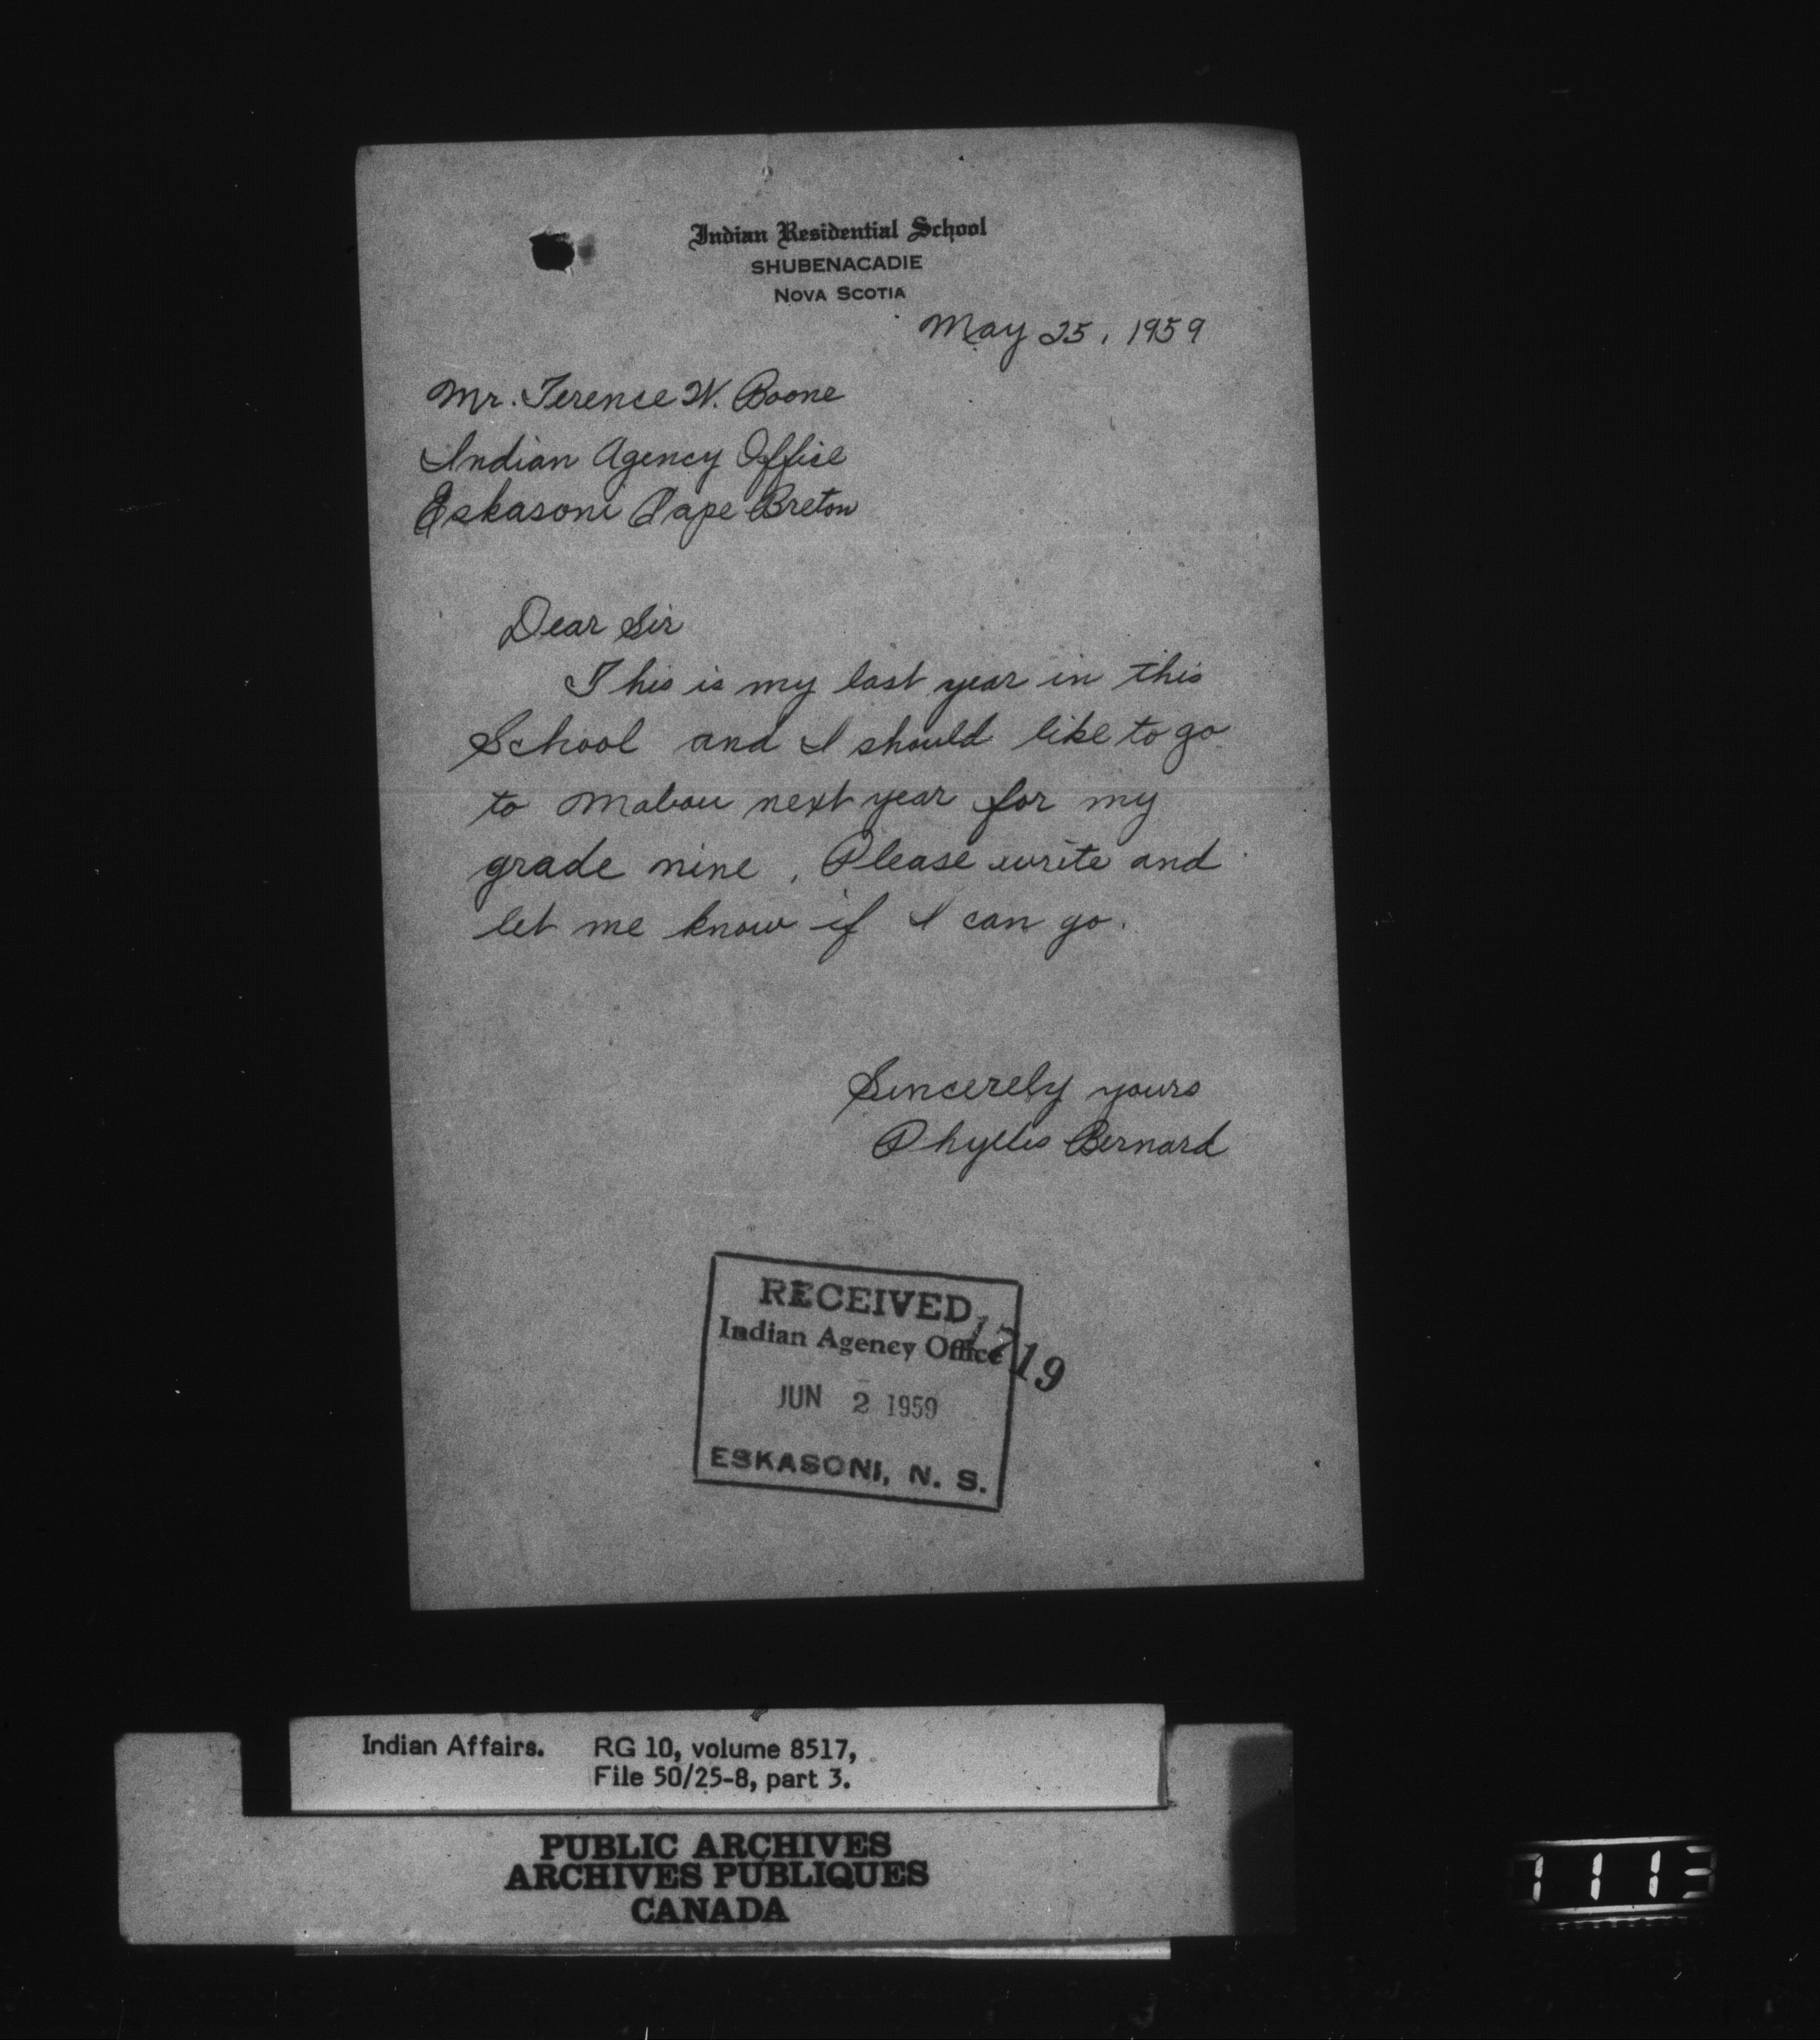 Indian Residential School
SHUBENACADIE
NOVA SCOTIA
May 25, 1959
Mr. Terence W. Boone
Indian Agency Office
Eskasoni Cape Breton
Dear Sir
This is my last year in this
School and I should like to go
to Mabou next year for my
grade nine. Please write and
let me know if I can go.
Sincerely yours
Phyllis Bernard
RECEIVED
1719
Indian Agency Office
JUN 2 1959
ESKASONI, N. S.
Indian Affairs. RG 10, volume 8517,
File 50/25-8, part 3.
PUBLIC ARCHIVES
ARCHIVES PUBLIQUES
CANADA
7113